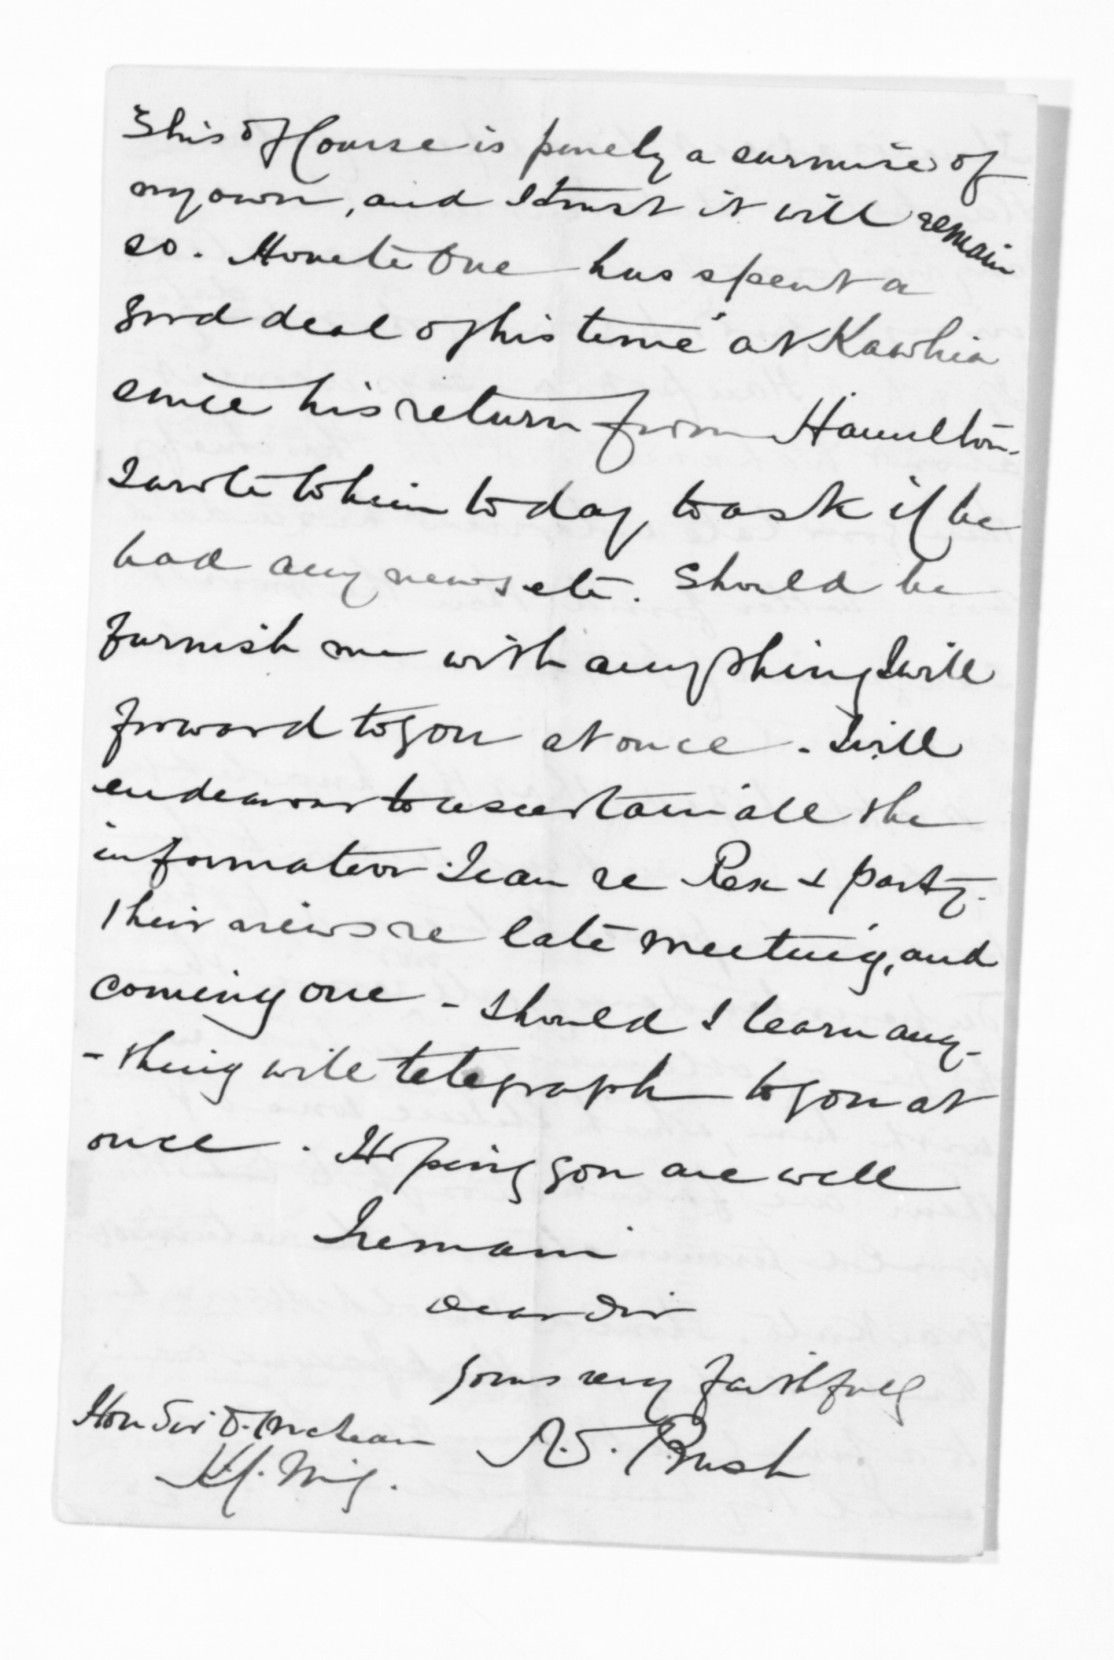 This of Course is purely a surmise of
my own, and I trust it will remain
so. Honete One has spent a
good deal of his time at Kawhia
since his return from Hamilton.
I wrote to him today, to ask if he
had any news etc. Should he
furnish me with anything I will
forward to you at once. I will
endeavour to ascertain all the
information I can re Rex & party.
Their views re late meeting, and
coming one - should I learn any-
-thing will telegraph to you at
once. Hoping you are well
I remain
Dear Sir
Yours very faithfully
Hon Sir D. McLean R.S. Bush